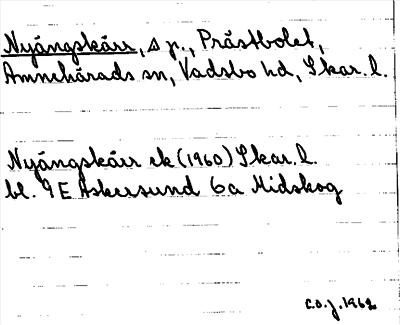 Nyängskärr, s p., Prästbolet,
Amnehärads sn, Vadsbo hd, Skar. l.
Nyängskärr ek (1960) Skar. l.
bl. 9 E Askersund 6a Midskog
C.O.J. 1962